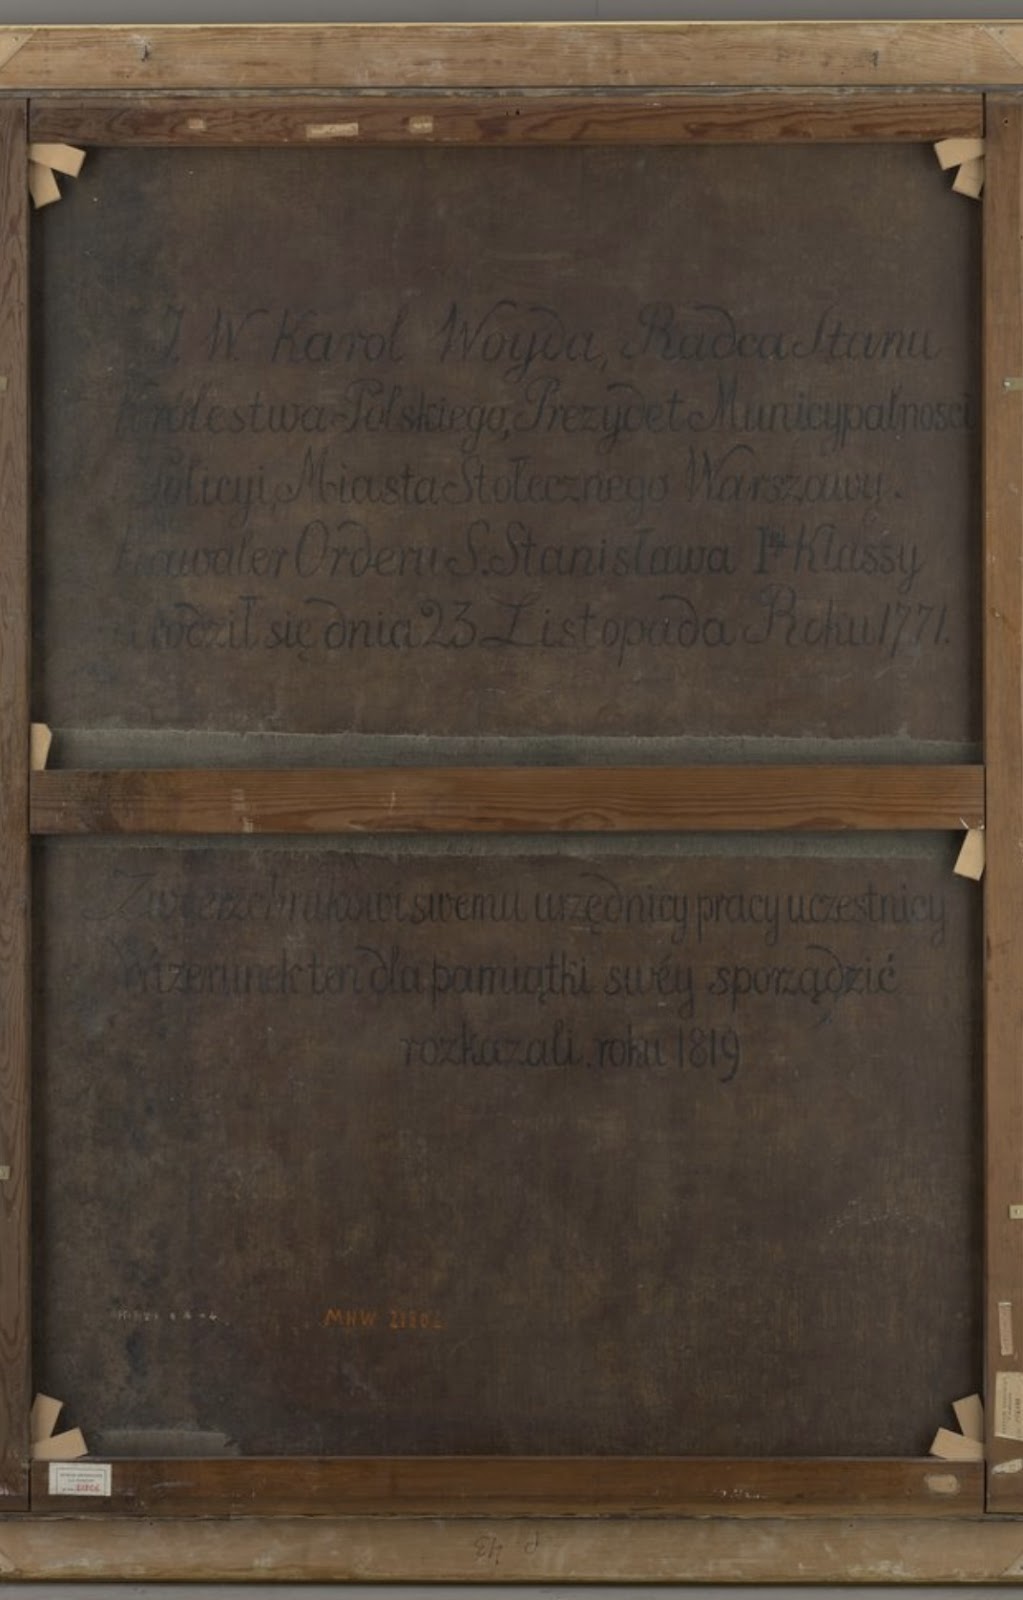 J. W. Karol Woyda, Radca Stanu
Królestwa Polskiego, Prezydet Municypalnosci
Policyi, Miasta Stołecznego Warszawy.
Kawaler Orderu S. Stanisława Iszéj Klassy
urodził się dnia 23 Listopada Roku 1771.
Zwierzchnikowi swemu urzędnicy pracy uczestnicy
Wizerunek ten dla pamiątki swéy sporządzić
rozkazali. roku 1819
MNW